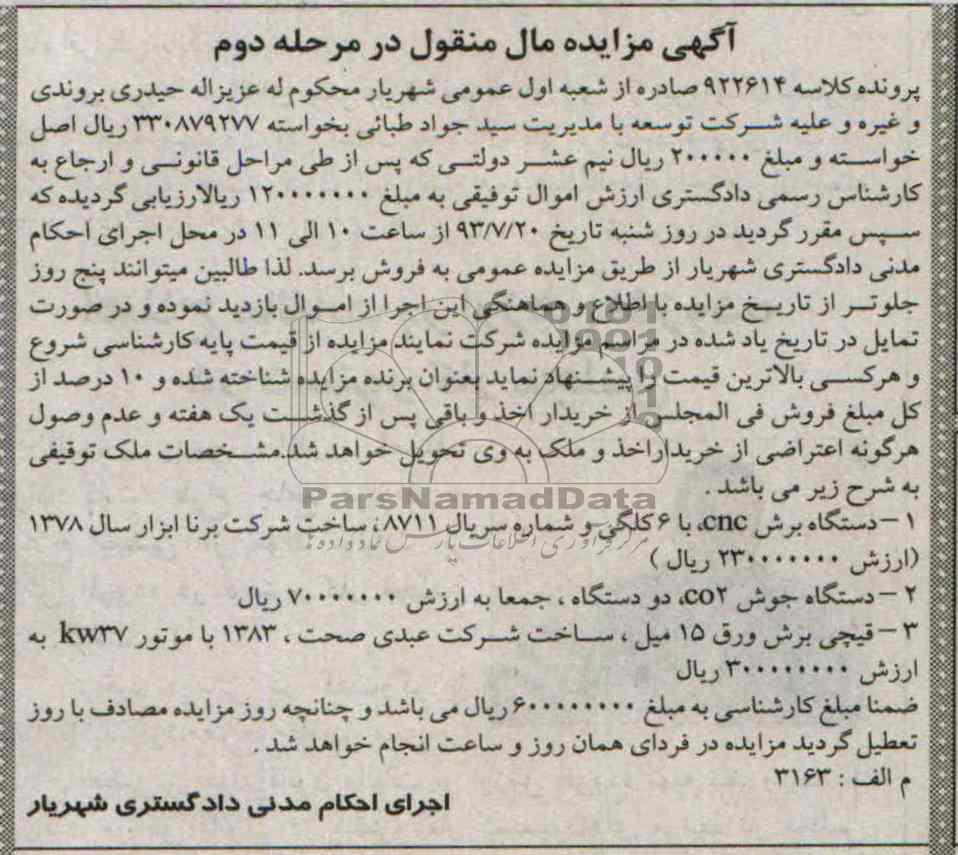 آگهی مزایده مال منقول در مرحله دوم
پرونده کلاسه ۹۲۲۶۱۴ صادره از شعبه اول عمومی شهریار محکوم له عزیزاله حیدری بروندی
و غیره و علیه شرکت توسعه با مدیریت سید جواد طبائی بخواسته ۳۳۰۸۷۹۲۷۷ ریال اصل
خواسته و مبلغ ۲۰۰۰۰۰ ریال نیم عشر دولتی که پس از طی مراحل قانونی و ارجاع به
کارشناس رسمی دادگستری ارزش اموال توفیقی به مبلغ ۱۲۰۰۰۰۰۰۰ ریالارزیابی گردیده که
سپس مقرر گردید در روز شنبه تاریخ ۹۳/۷/۲۰ از ساعت ۱۰ الی ۱۱ در محل اجرای احکام
مدنی دادگستری شهریار از طریق مزایده عمومی به فروش برسد. لذا طالبین میتوانند پنج روز
جلوتر از تاریخ مزایده با اطلاع و هماهنگی این اجرا از اموال بازدید نموده و در صورت
تمایل در تاریخ یاد شده در مراسم مزایده شرکت نمایند مزایده از قیمت پایه کارشناسی شروع
و هرکسی بالاترین قیمت را پیشنهاد نماید بعنوان برنده مزایده شناخته شده و ۱۰ درصد از
کل مبلغ فروش فی المجلس از خریدار اخذ و باقی پس از گذشت یک هفته و عدم وصول
هرگونه اعتراضی از خریداراخذ و ملک به وی تحویل خواهد شد.مشخصات ملک توقیفی
به شرح زیر می باشد .
ParsNamadData
۱ –دستگاه برش cnc، با ۶ کلگی و شماره سریال ۸۷۱۱ ، ساخت شرکت برنا ابزار سال ۱۳۷۸
مرکز فرآوری اطلاعات پارس نماد داده ها
(ارزش ۲۳۰۰۰۰۰۰۰ ریال )
۲ – دستگاه جوش co۲، دو دستگاه ، جمعا به ارزش ۷۰۰۰۰۰۰۰ ریال
۳ – قیچی برش ورق ۱۵ میل ، ساخت شرکت عبدی صحت ، ۱۳۸۳ با موتور kw۳۷ به
ارزش ۳۰۰۰۰۰۰۰۰ ریال
ضمنا مبلغ کارشناسی به مبلغ ۶۰۰۰۰۰۰۰۰ ریال می باشد و چنانچه روز مزایده مصادف با روز
تعطیل گردید مزایده در فردای همان روز و ساعت انجام خواهد شد .
م الف : ۳۱۶۳
اجرای احکام مدنی دادگستری شهریار